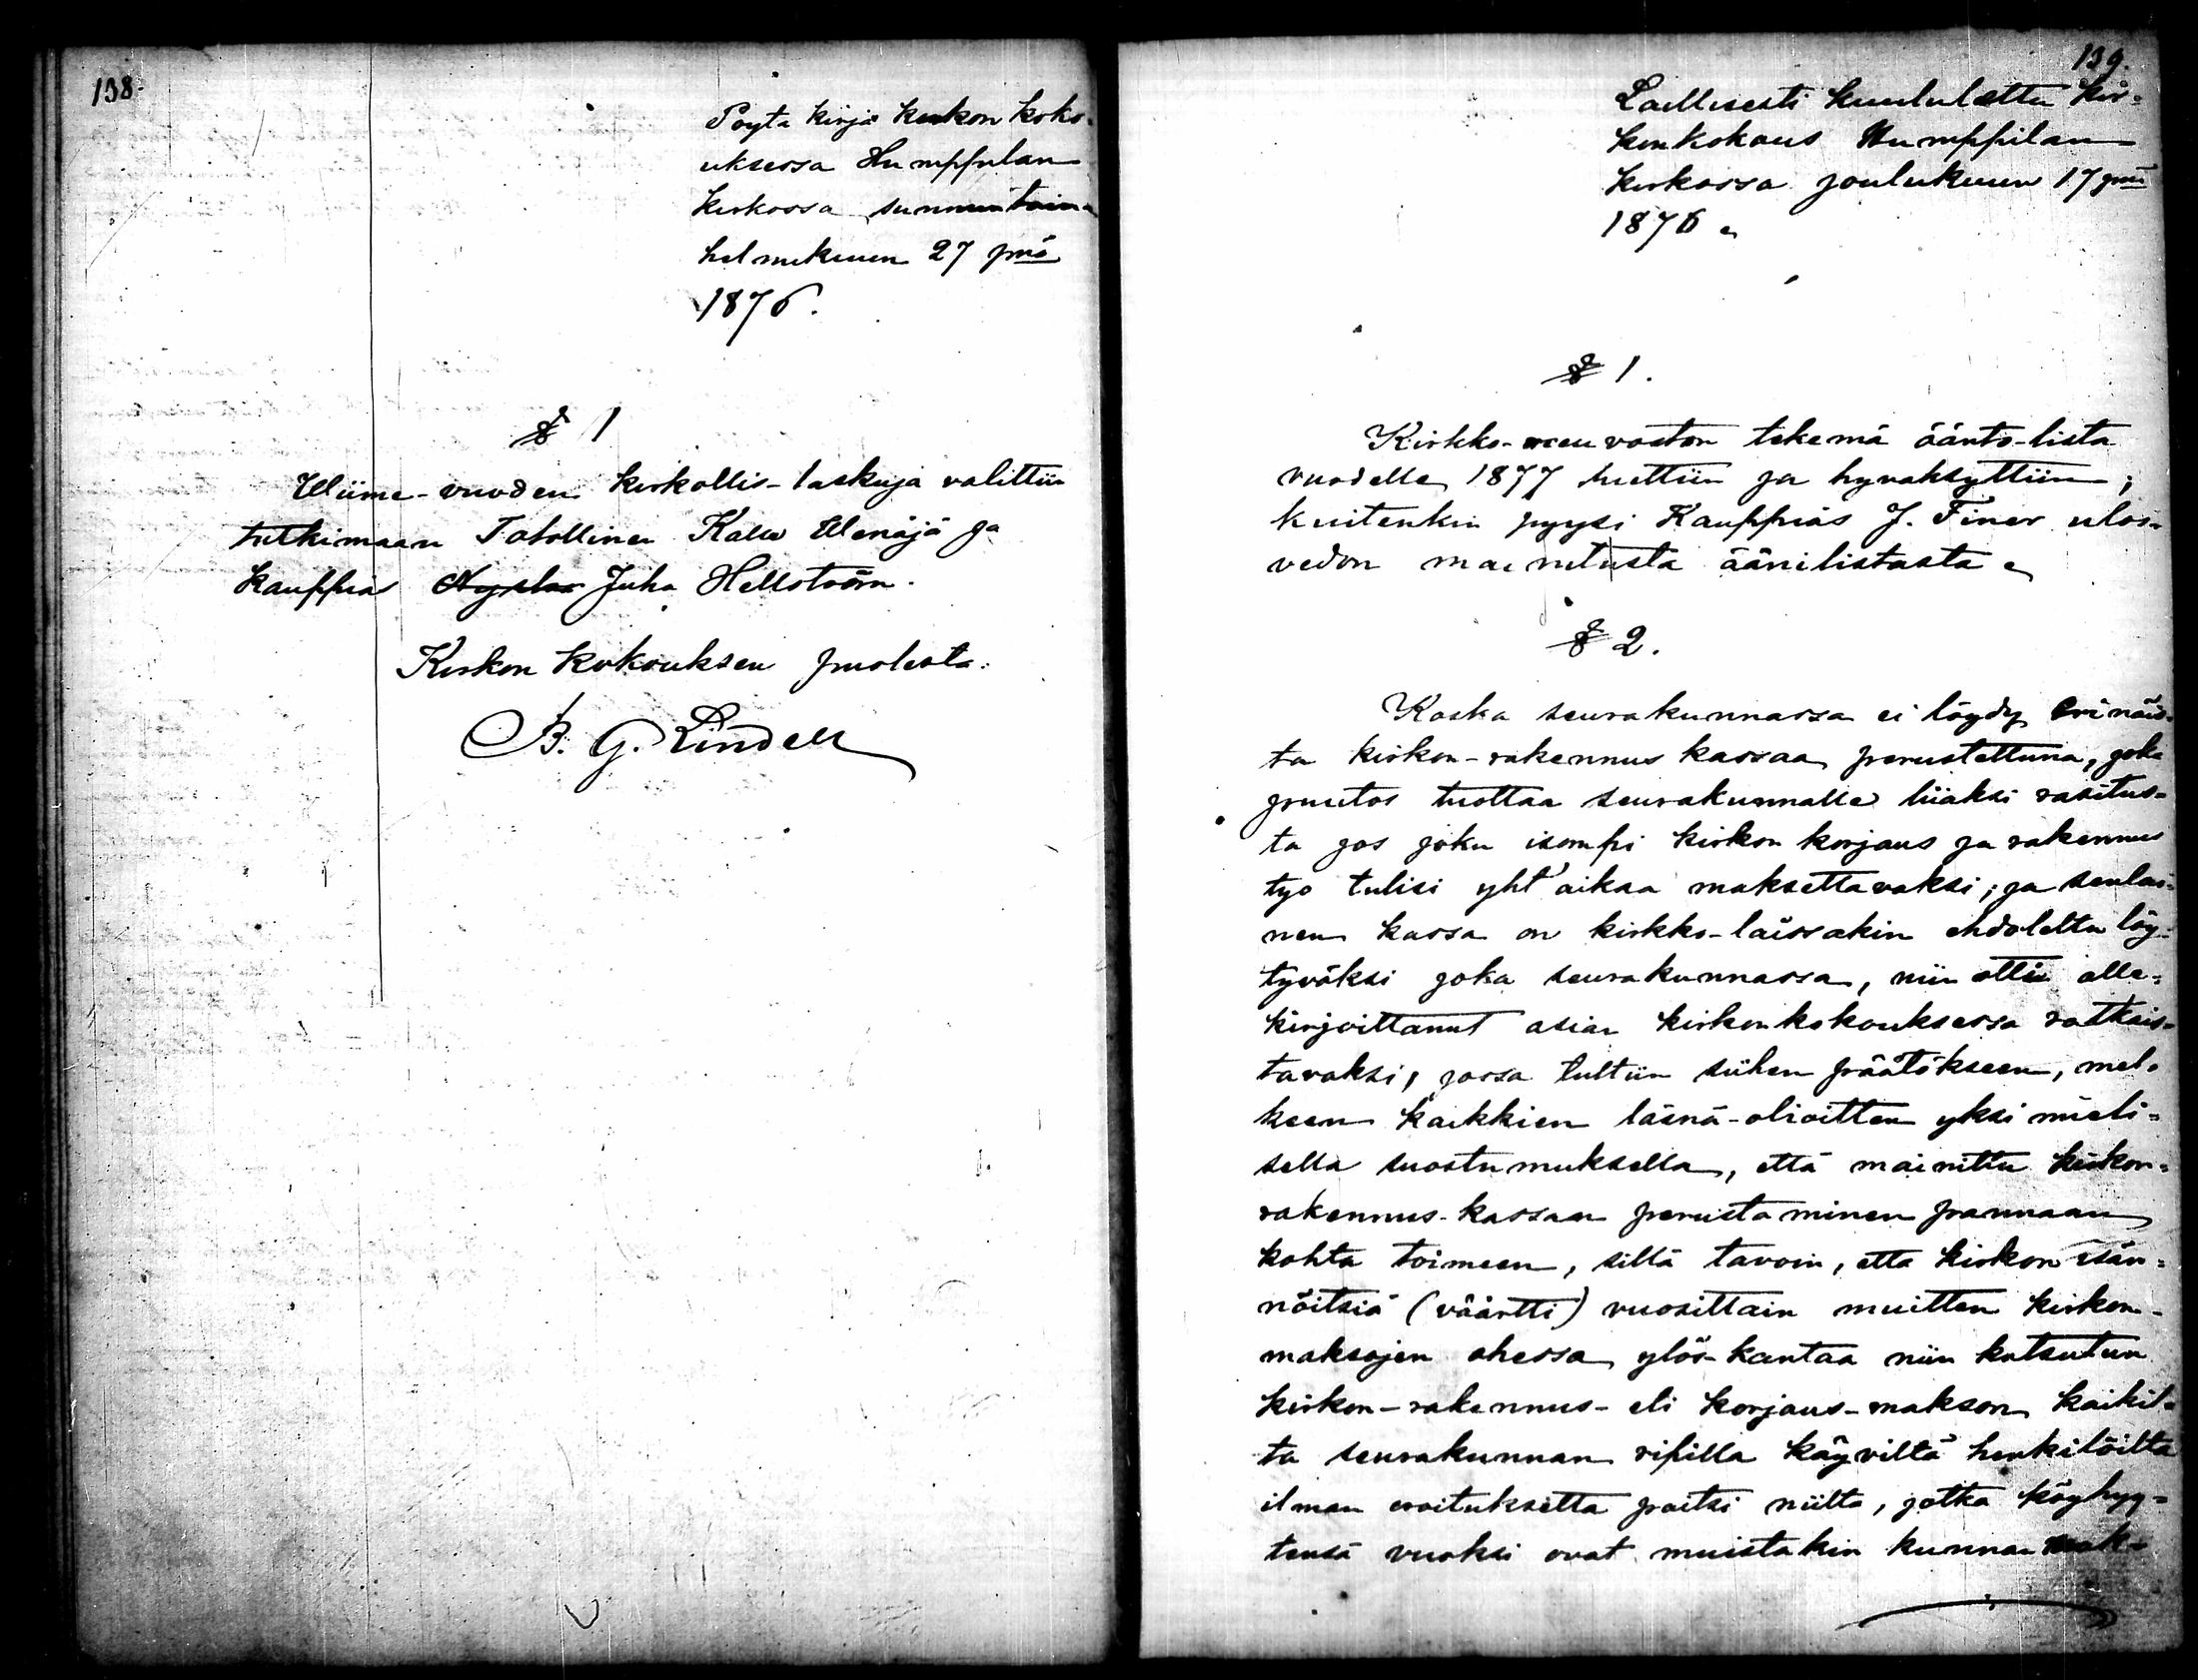 138.
Pöytä kirja kirkon koko-
uksessa Humppilan
kirkossa sunnuntaina
helmikuun 27 pnä
1876.
§ 1
Wiime-vuoden kirkollis-laskuja valittiin
tutkimaan Talollinen Kalle Wenäjä ja
kauppias Juha Hellström.
Kirkon kokouksen puolesta:
B. G. Lindell
139.
Laillisesti kuulutettu kir-
konkokous Humppilan
kirkossa joulukuun 17 pnä
1876.
§ 1.
Kirkko-neuvoston tekemä ääntö-lista
vuodelle 1877 luettiin ja hyväksyttiin;
kuitenkin pyysi Kauppias J. Finer ulos-
vedon mainitusta äänilistasta.
§ 2.
Koska seurakunnassa ei löydy erinäis-
tä kirkon-rakennus kassaa perustettuna, joka
puutos tuottaa seurakunnalle liiaksi rasitus-
ta jos joku isompi kirkon korjaus ja rakennus
työ tulisi yht'aikaa maksettavaksi; ja senlai-
nen kassa on kirkko-laissakin ehdolettu löy-
tyväksi joka seurakunnassa, niin otti alle-
kirjoittanut asian kirkonkokouksessa ratkais-
tavaksi, jossa tultiin siihen päätökseen, mel-
keen kaikkien läsnä-olioitten yksi mieli-
sellä suostumuksella, että mainittu kirkon-
rakennus-kassan perustaminen pannaan
kohta toimeen, sillä tavoin, että kirkon isän-
nöitsiä (väärtti) vuosittain muitten kirkon-
maksojen ohessa ylös-kantaa niin kutsutun
kirkon-rakennus- eli korjaus-makson kaikil-
ta seurakunnan ripillä käyviltä henkilöiltä
ilman eroituksetta paitsi niiltä, jotka köyhyy-
tensä vuoksi ovat muistakin kunnan mak-